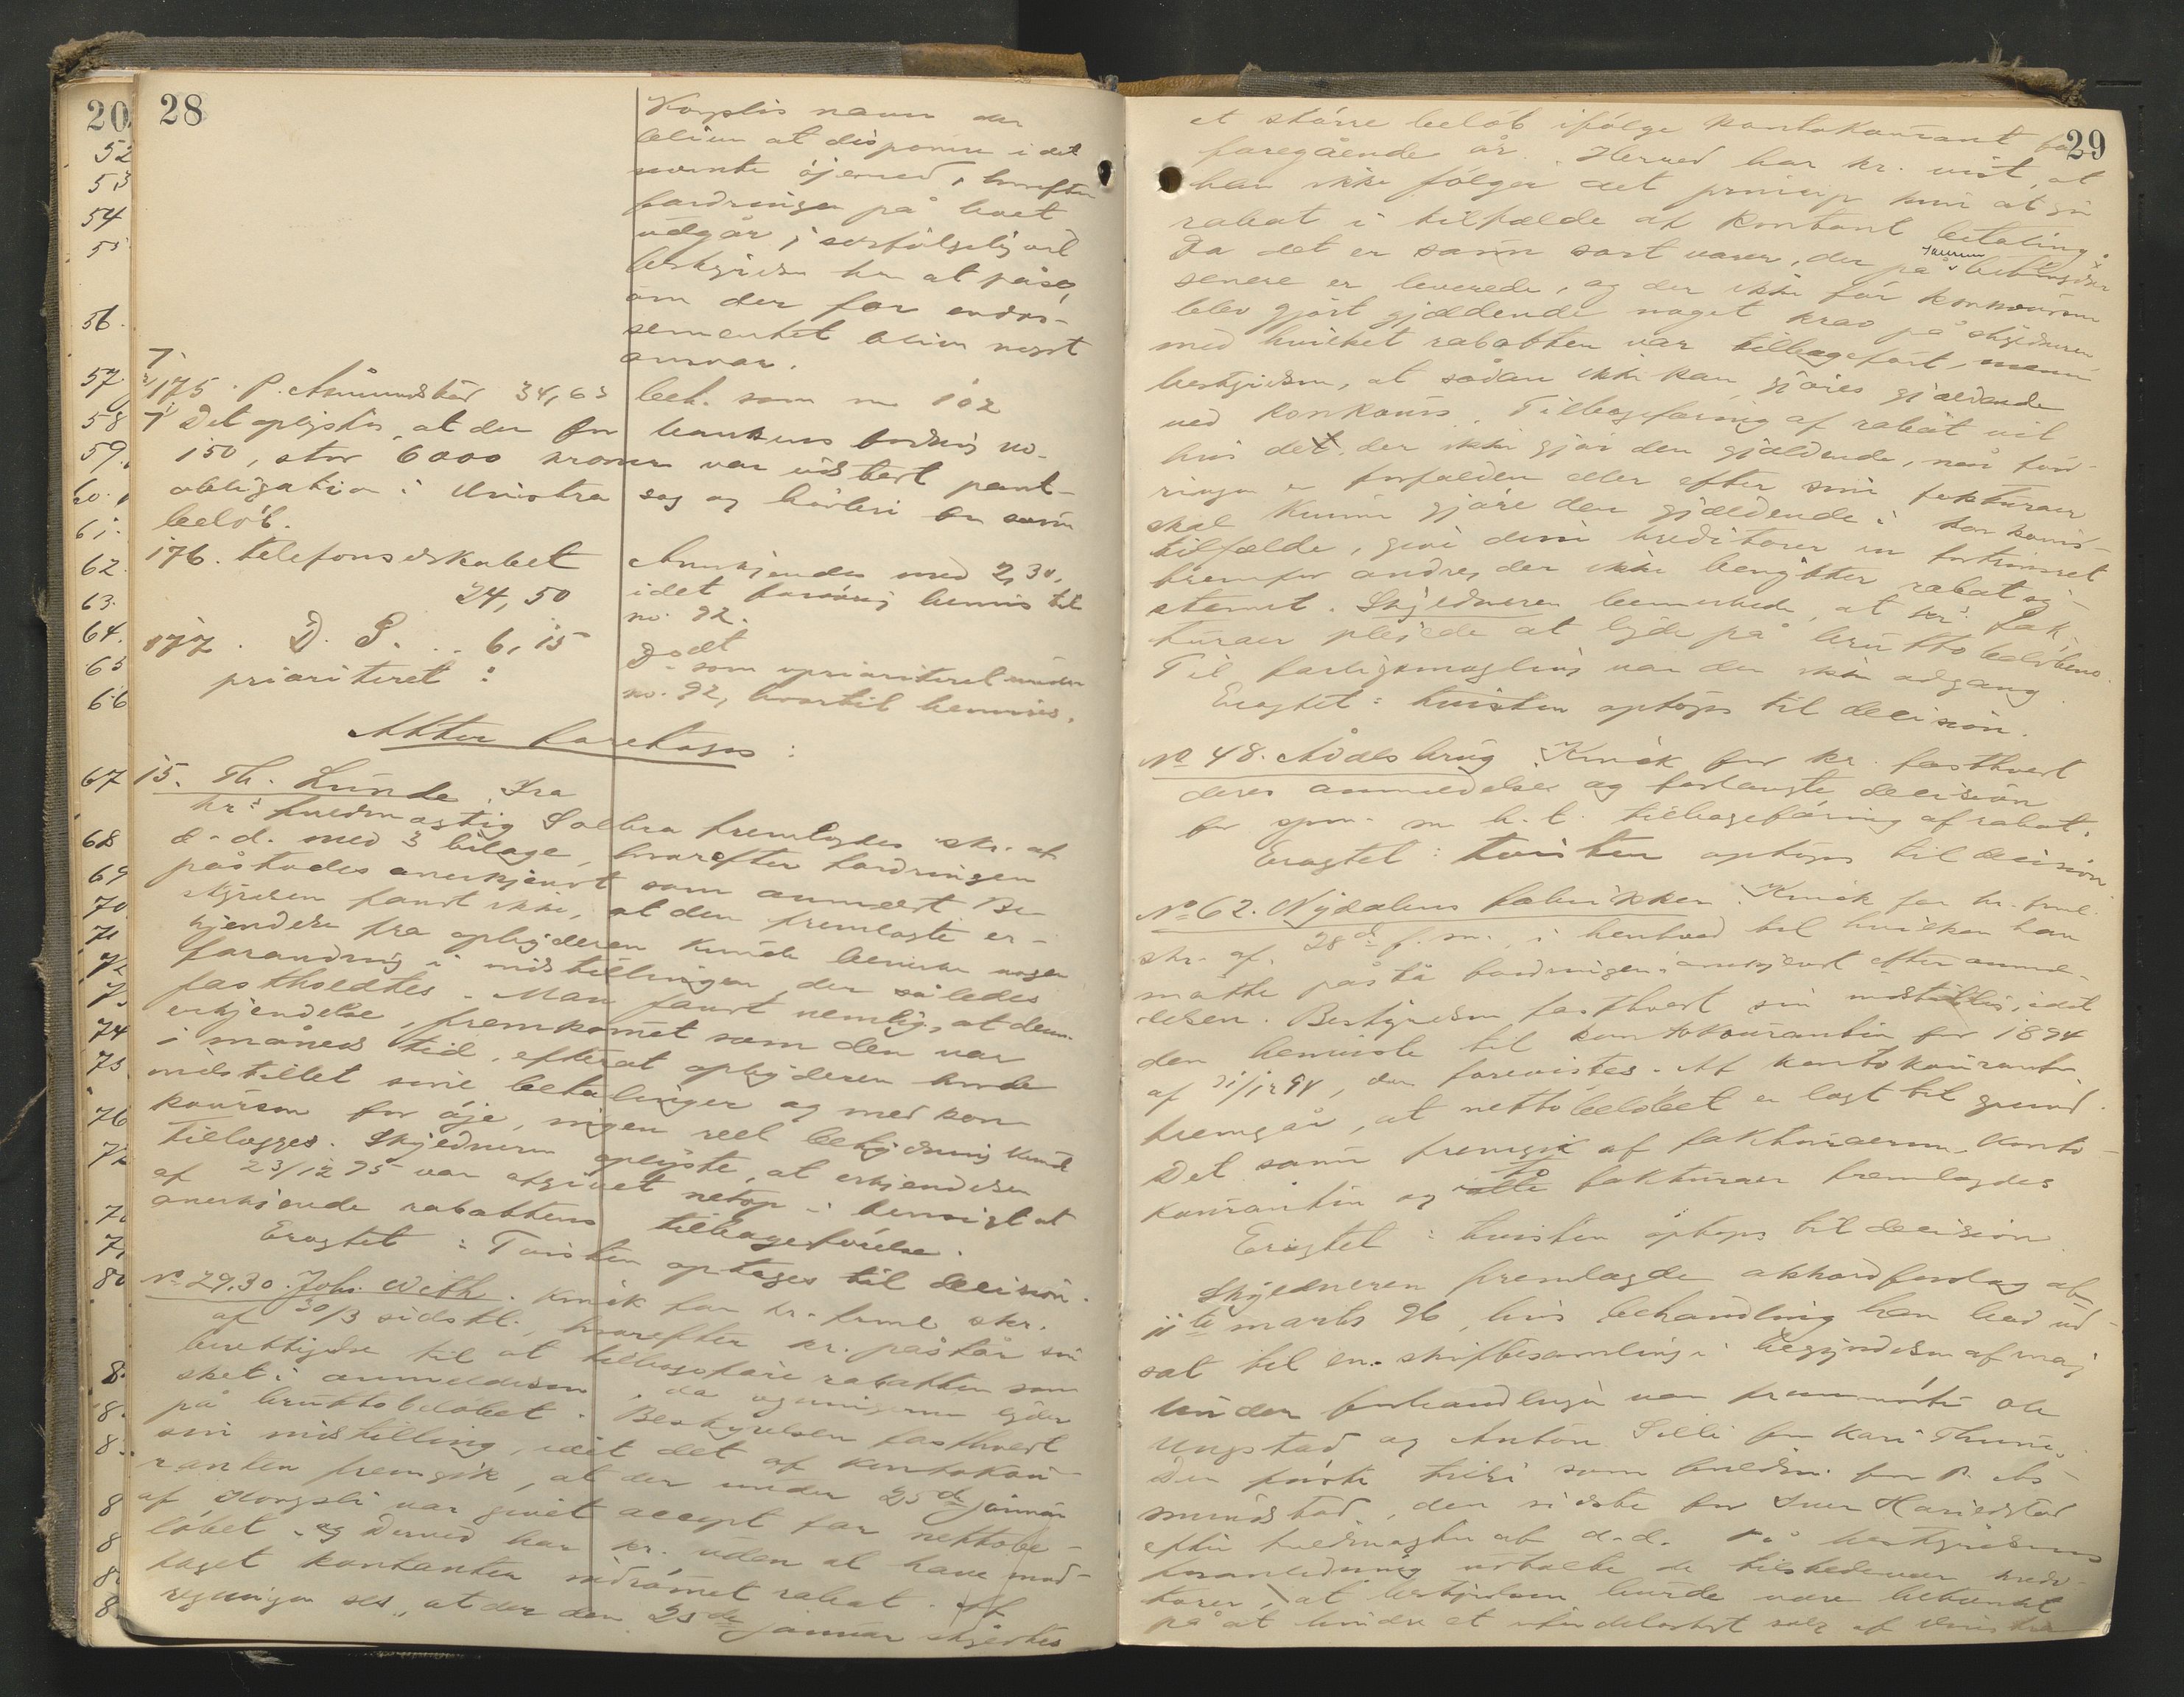 20
52
53
54
55
56.
57.
58
59.
60.
61.
62.
63.
64.
65
66
67
68
69
70
71
72
73
74
75.
76
77
28
Kongslis navn der
bliver at disponere i det
nævnte öjemed, hvorefter
fordringen på boet
udgår; selvfølgelig vil
bestyrelsen ha at påse,
om der for endos-
sementet bliver noget
ansvar.
175. P. Åsmundstad 34,63 beh. som no 102
Det oplystes, at der for bankens fordring no.
150, stor 6000 kroner var udstedt pant-
obligation i Unistra sag og høvleri for samme
beløb.
176. Telefonselskabet Anerkjendes med 2,30,
24,50 idet forøvrig henvis til
no. 92.
177. D. S. .. 6,15 Dodt
prioritet : som uprioriteret under
no. 92, hvortil henvises.
Atter foretoges :
15. Th. Lunde. Fra
hr: fuldmægtig Solbra fremlagdes skr. af
d. d. med 3 bilage, hvorefter fordringen
påstodes anerkjendt som anmeldt. Be-
styrelsen fandt ikke, at den fremlagte er-
kjendelse fra opbyderen kunde bevirke nogen
forandring i indstillingen, der således
fastholdtes. Man fandt nemlig, at denne
erkjendelse, fremkommet som den var
i måneds tid, efterat opbyderen havde
indstillet sine betalinger og med kon-
kursen for øje, ingen reel betydning kunde
tillægges. Skyldneren oplyste, at erkjendelsen
af 23/12 95 var afgivet netop i hensigt at
anerkjende rabattens tilbageførelse.
Eragtet : Tvisten optages til decision.
No 29.30. Joh. With. Kinck for kr. freml. skr.
af 30/3 sidstl., hvorefter kr. påstår sin
berettigelse til at tilbageføre rabatten som
sket i anmeldelsen, da regningerne lyder
på bruttobeløbet. Bestyrelsen fastholdt
sin indstilling, idet det af kontokou-
ranten fremgik, at der under 25de januar
af Kongsli var givet accept for nettobe-
løbet, og derved har kr. uden at have mod-
taget kontanter indrømmet rabat. Af
regningen ses, at der den 25de januar skyldtes
29
et større beløb ifølge kontokourant for
foregående år. Herved har kr. vist, at
han ikke følger det princip kun at gi
rabat i tilfælde af kontant betaling.
Da det er samme sort varer, der på samme betingelser
senere er leverede, og der ikke før konkursen
blev gjort gjældende noget krav på skyldneren
med hvilket rabatten var tilbageført, mener
bestyrelsen, at sådan ikke kan gjøres gjældende
ved konkurs. Tilbageføring af rabat vil
hvis det, der ikke gjør den gjældende, når ford-
ringen er forfalden eller efter sine fakturaer
skal kunne gjøre den gjældende i konkurs-
tilfælde, give disse kreditorer en fortrinsret
fremfor andre, der ikke benytter rabatsy-
stemet. Skyldneren bemærkede, at kr: fak-
turaer plejede at lyde på bruttobeløbene.
Til forligsmægling var der ikke adgang.
Eragtet : tvisten optages til decision.
No 48. Ådals brug. Kinck for kr. fastholdt
deres anmeldelse og forlangte decision
for spm. m. h. t. tilbageføring af rabat.
Eragtet : tvisten optages til decision
No 62. Nydalens fabrikker. Kinck for kr. freml.
skr. af 28de f. m., i henhold til hvilken han
måtte påstå fordringen anerkjendt efter anmel-
delsen. Bestyrelsen fastholdt sin indstilling, idet
den henviste til kontokouranten for 1894
af 31/12 94, der forevistes. Af kontokouranten
fremgår, at nettobeløbet er lagt til grund.
Det samme fremgik af fakturaerne. Konto-
kouranten og to fakturaer fremlagdes
Eragtet : tvisten optages til decision.
Skyldneren fremlagde akkordforslag af
11te marts 96, hvis behandling han bad ud-
sat til en skiftesamling i begyndelsen af maj
Under forhandlingen var fremmødte Ole
Ungstad og Anton Lilli for Kari Thune.
Den første tillige som fuldm. for P. Ås-
mundstad, den sidste for Iver Harildstad
efter fuldmagter af d. d. På bestyrelsens
foranledning udtalte de tilstedeværende kredi-
torer, at bestyrelsen burde være betænkt
på at hindre et ufordelagtigt salg af Unistra